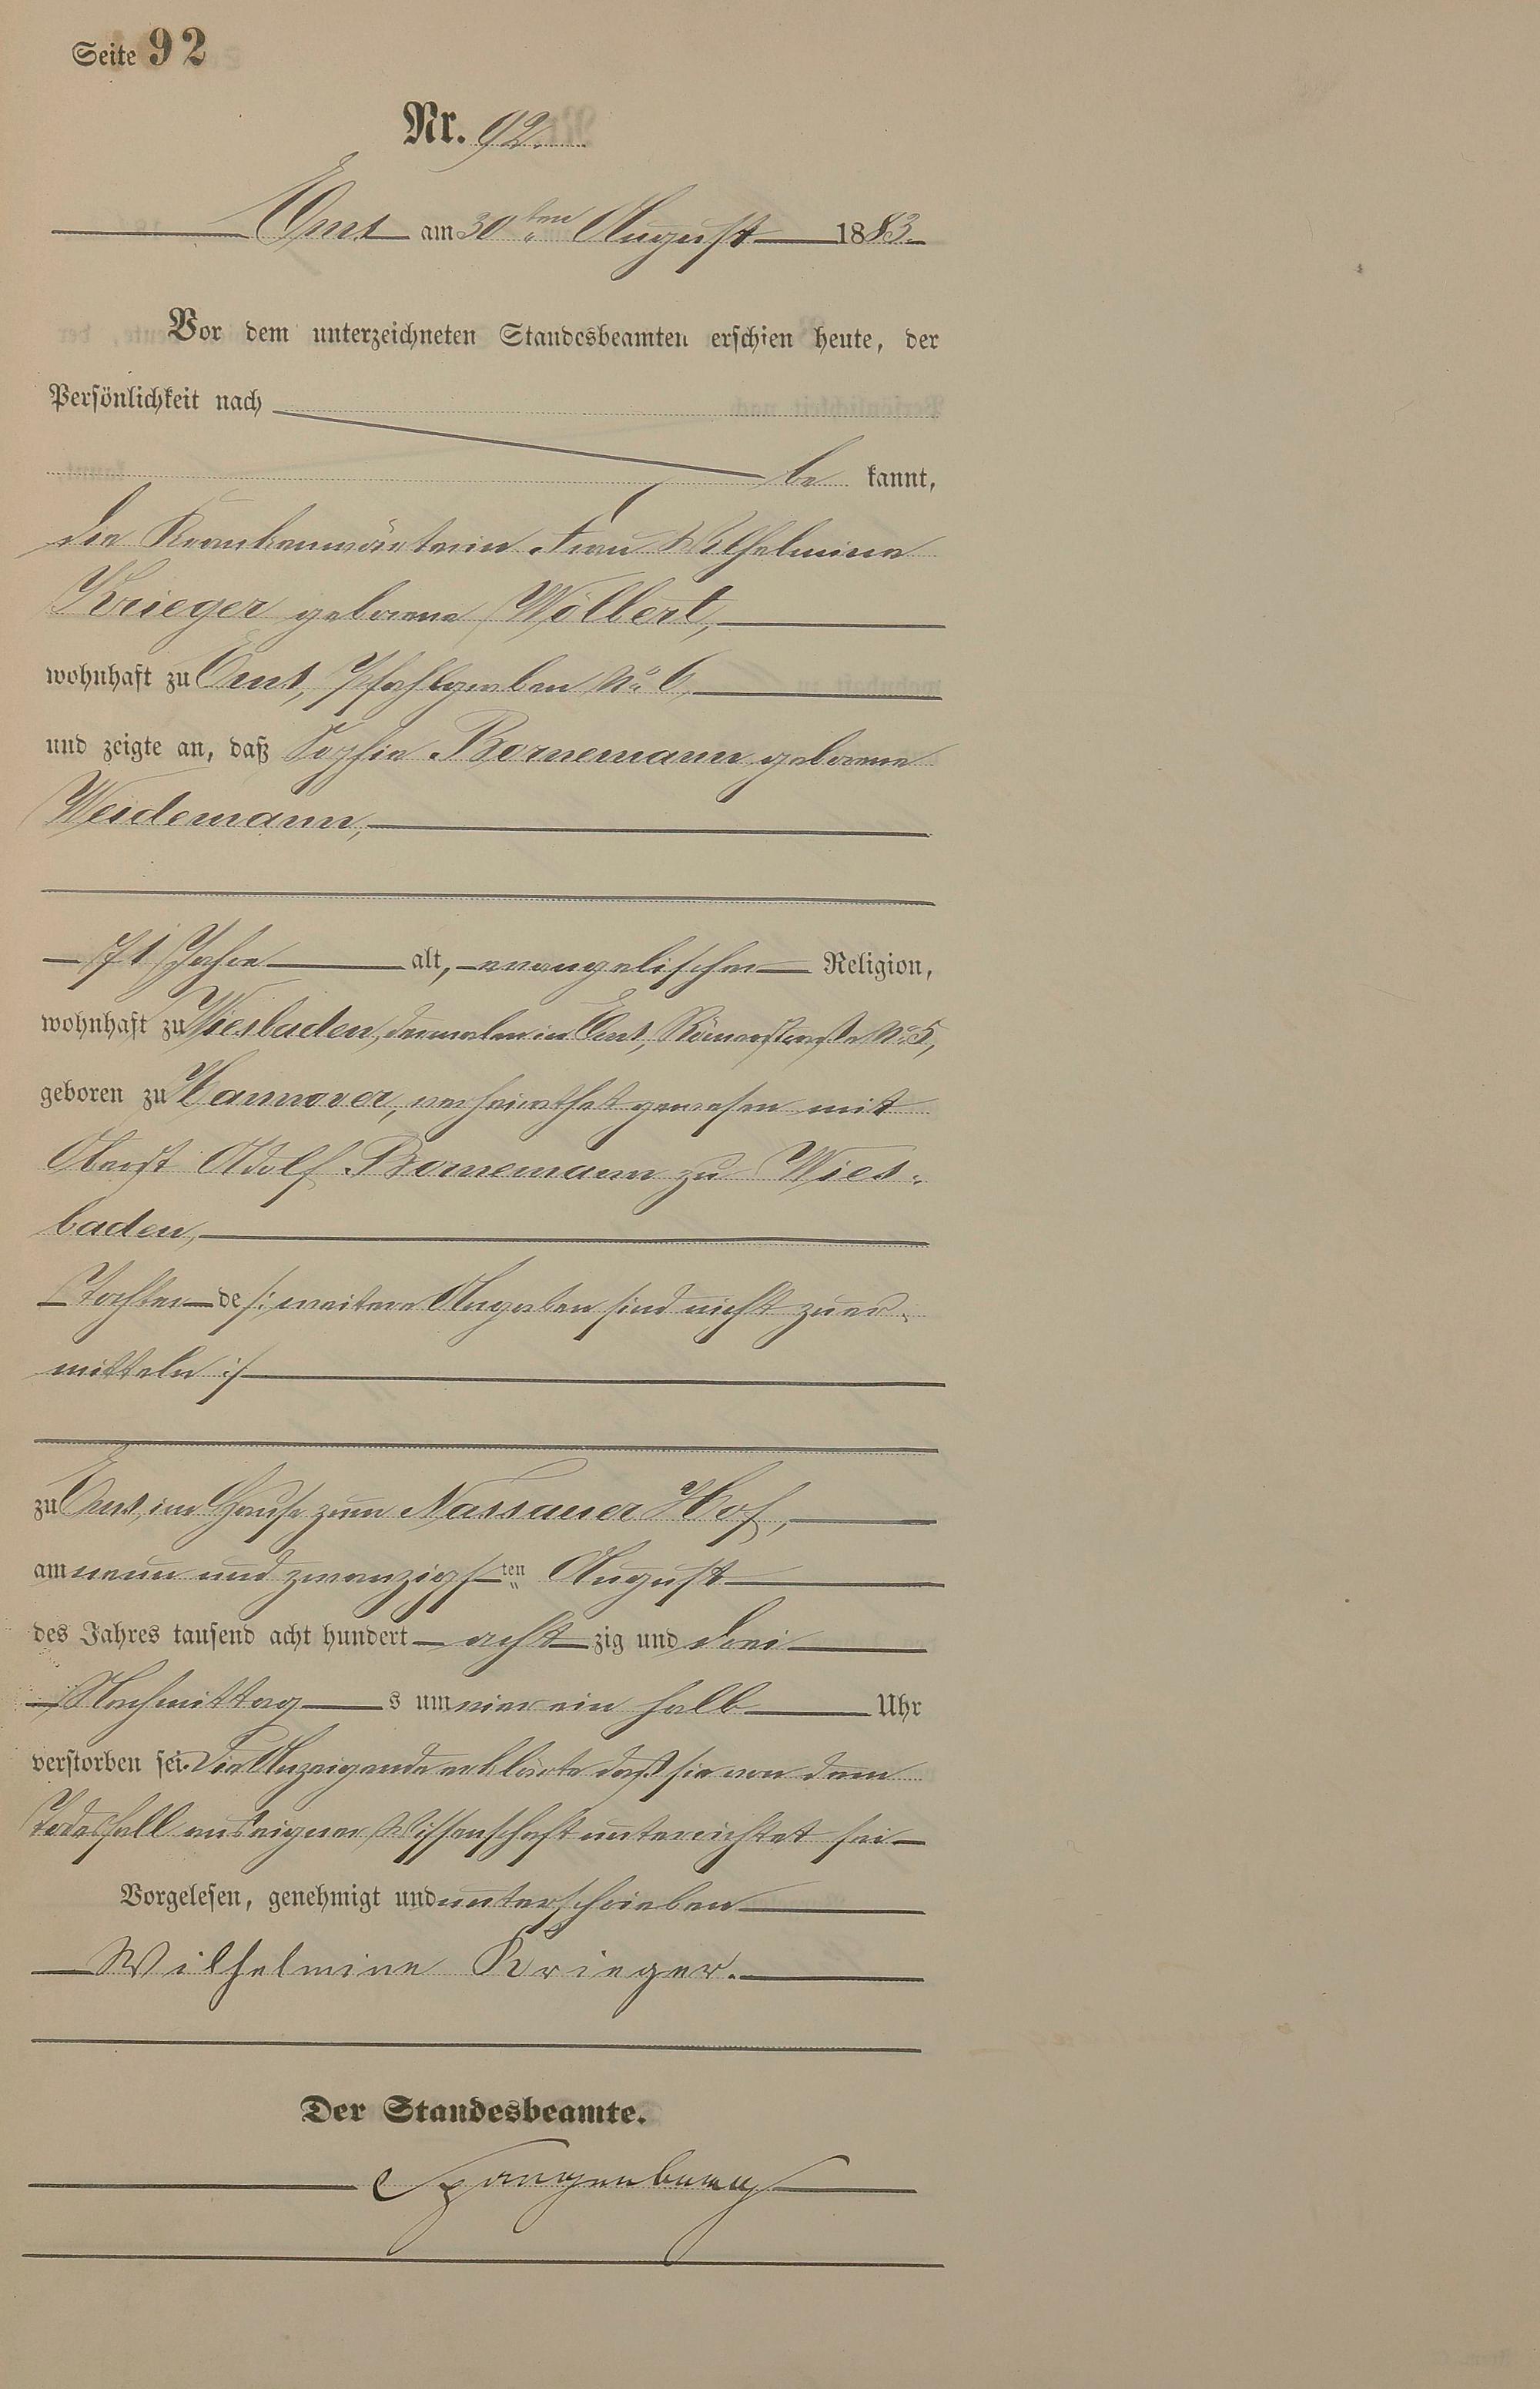 Seite 92
Nr. 92.
Ems am 30ten August 1883.
Vor dem unterzeichneten Standesbeamten erschien heute, der
Persönlichkeit nach
be kannt,
die Krankenwärterin Frau Wilhelmine
Krieger geborene Wölbert,
wohnhaft zu Ems, Pfahlgraben No 6,
und zeigte an, daß Sophie Bornemann geborene
Weidemann,
71 Jahre alt, evangelischer Religion,
wohnhaft zu Wiesbaden, dermalen in Ems, Römerstraße No 5,
geboren zu Hannover, verheirathet gewesen mit
Oberst Adolf Bornemann zu Wies-
baden,
Tochter de /: weitere Angaben sind nicht zu er-
mitteln :/
zu Ems, im Hause zum Nassauer Hof,
am neun und zwanzigsten August
des Jahres tausend acht hundert acht zig und drei
Nachmittag s um vier ein halb Uhr
verstorben sei. Die Anzeigende erklärte daß sie von dem
Todesfall aus eigner Wissenschaft unterrichtet sei
Vorgelesen, genehmigt und unterschrieben
Wilhelmine Krieger.
Der Standesbeamte.
Spangenberg